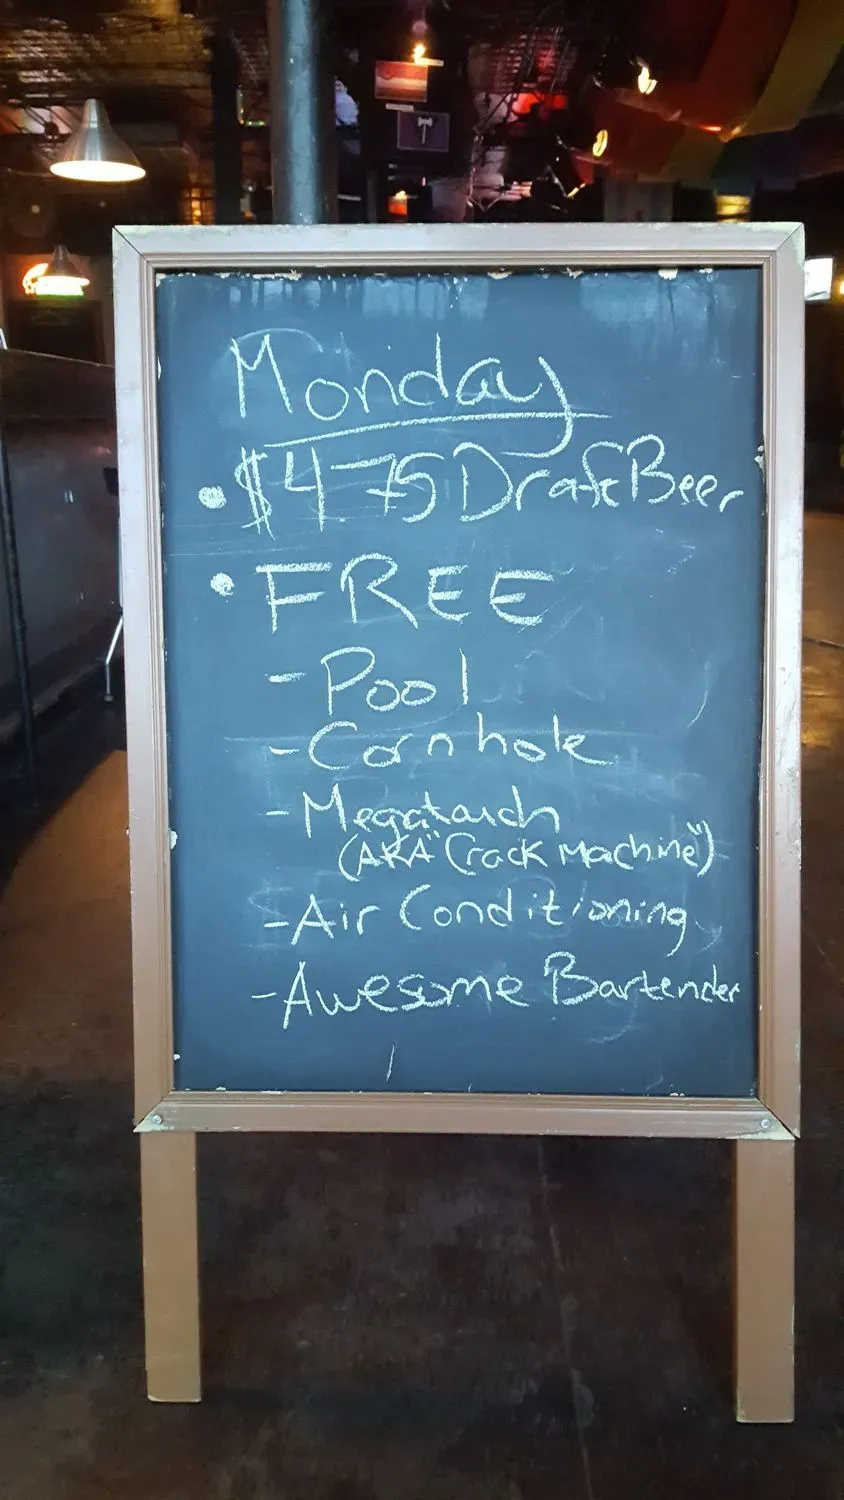 Monday
• $475 Draft Beer
• FREE
- Pool
- Cornhole
- Megatouch
(AKA "Crack Machine")
- Air Conditioning
- Awesome Bartender